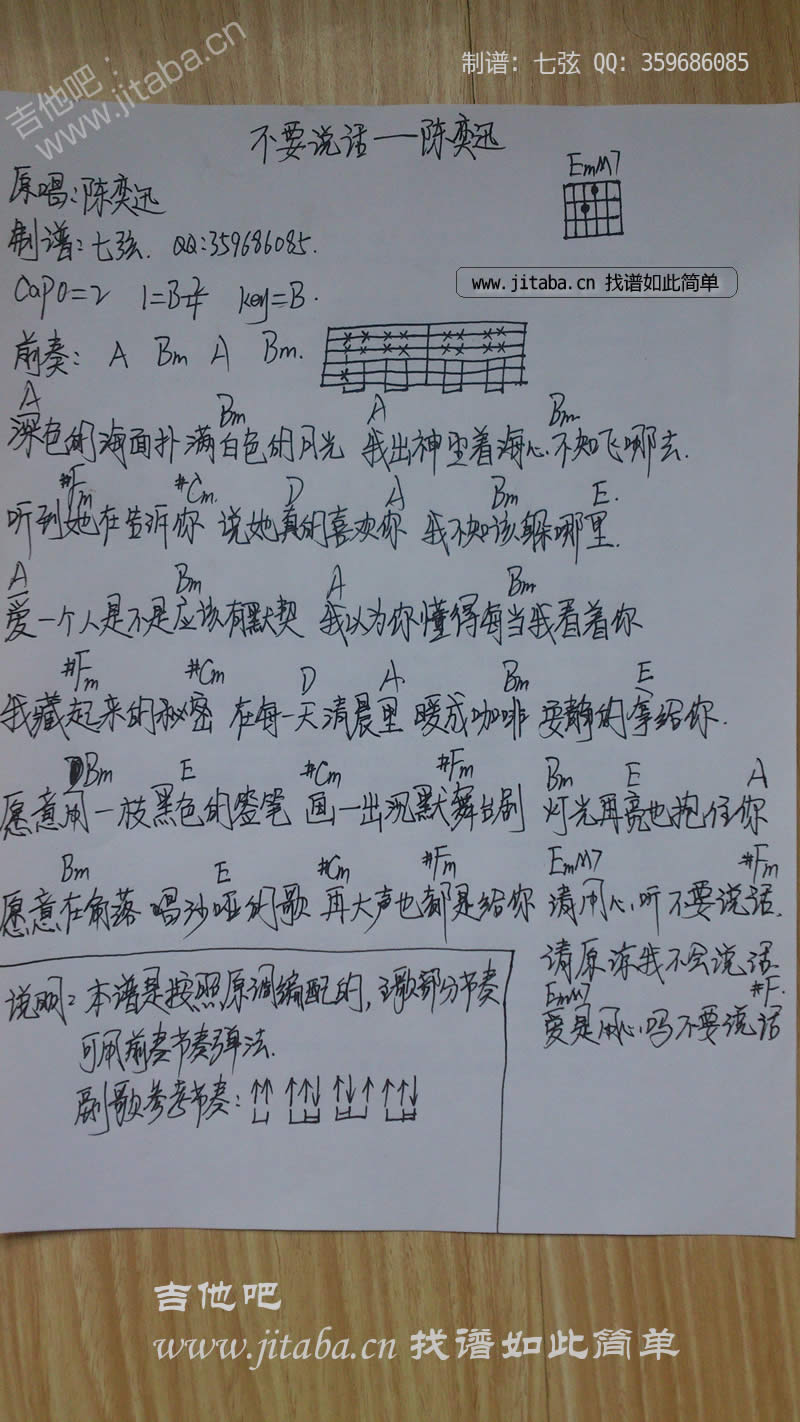 制谱: 七弦 QQ: 359686085
吉他吧:
www.jitaba.cn
不要说话——陈奕迅
EmM7
原唱:陈奕迅
制谱:七弦. QQ:359686085.
www.jitaba.cn 找谱如此简单
Capo=2 1=B 4/4 key=B.
前奏: A Bm A Bm.
A Bm A Bm
深色的海面扑满白色的月光 我出神望着海心不知飞哪去.
#Fm #Cm. D A Bm E.
听到她在告诉你 说她真的喜欢你 我不知该躲哪里.
A Bm A Bm
爱一个人是不是应该有默契 我以为你懂得每当我看着你
#Fm #Cm D A. Bm E
我藏起来的秘密 在每一天清晨里 暖成咖啡 安静的拿给你.
Bm E #Cm #Fm Bm E A
愿意用一枝黑色的签笔 画一出沉默舞台剧 灯光再亮也抱住你
Bm E #Cm #Fm EmM7 #Fm
愿意在角落 唱沙哑的歌 再大声也都是给你 请用心听不要说话.
请原谅我不会说话.
EmM7 #F.
爱是用心吗不要说话
说明:本谱是按照原调编配的,主歌部分节奏
可用前奏节奏弹法.
副歌参考节奏: ↑↑ ↑↑↓ ↑↓↑ ↑↑↓
吉他吧
www.jitaba.cn 找谱如此简单